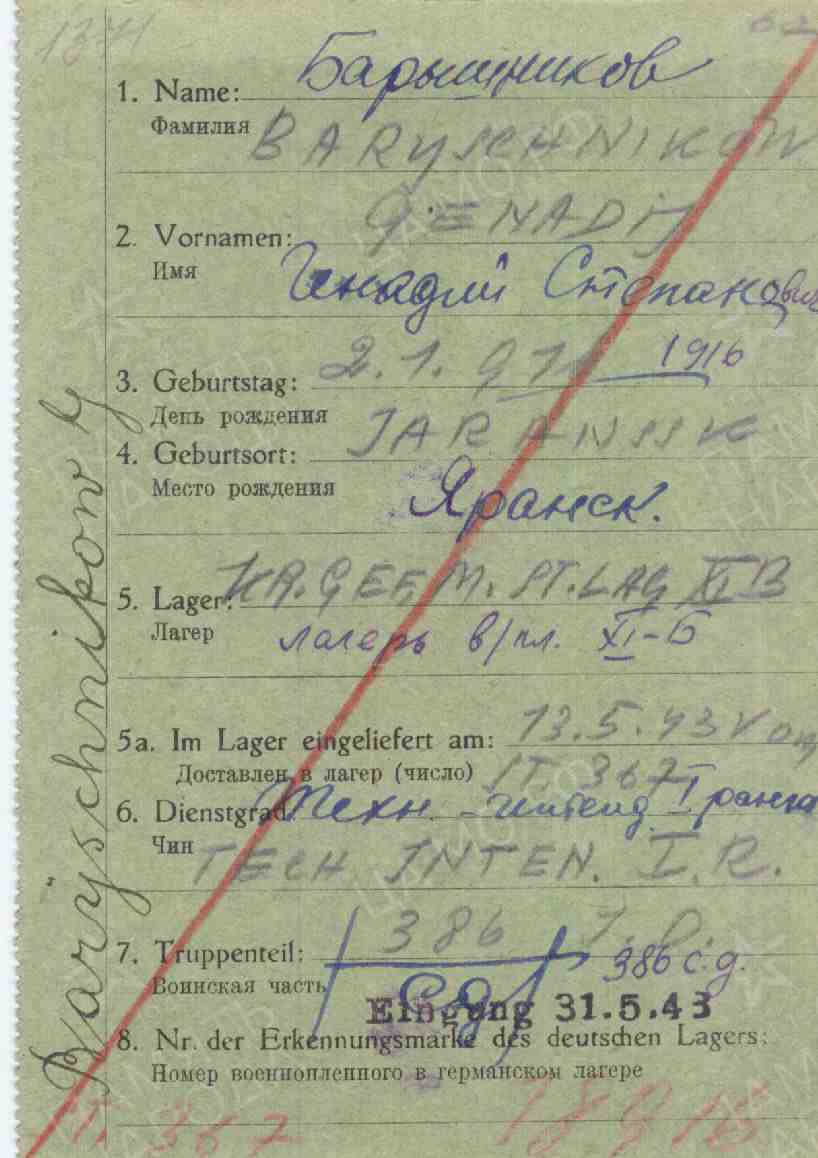 1371
Барышников
1. Name:
Фамилия
BARYSCHNIKOW
GENADIJ
2. Vornamen:
Имя
Генадий Степанович
2.1.91 1916
3. Geburtstag:
День рождения
JARANSSK
4. Geburtsort:
Место рождения
Яранск.
KR. GEF. M. ST. LAG XI B
5. Lager:
Лагерь в/пл. XI-Б
Лагер
13.5.43 von
5a. Im Lager eingeliefert am:
Доставлен в лагер (число)
ST. 367
6. Dienstgrad
Техн. - интенд I ранга
Чин
TECH. INTEN. I. R.
386 I. D.
7. Truppenteil:
Воинская часть
386 с.д.
сд
Eingang 31.5.43
8. Nr. der Erkennungsmarke des deutschen Lagers:
Номер военнопленного в германском лагере
ST. 367
Baryschnikow G